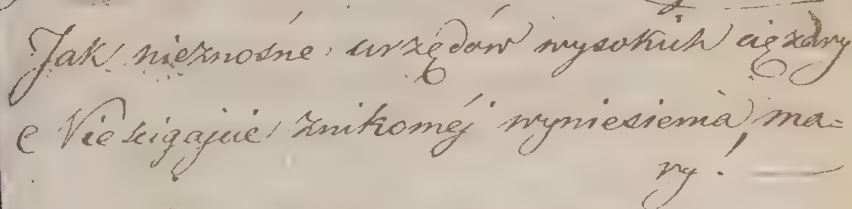 Jak nieznośne urzędów wysokich ciężary
Nie ścigajcie znikoméj wyniesienia ma=
ry! —